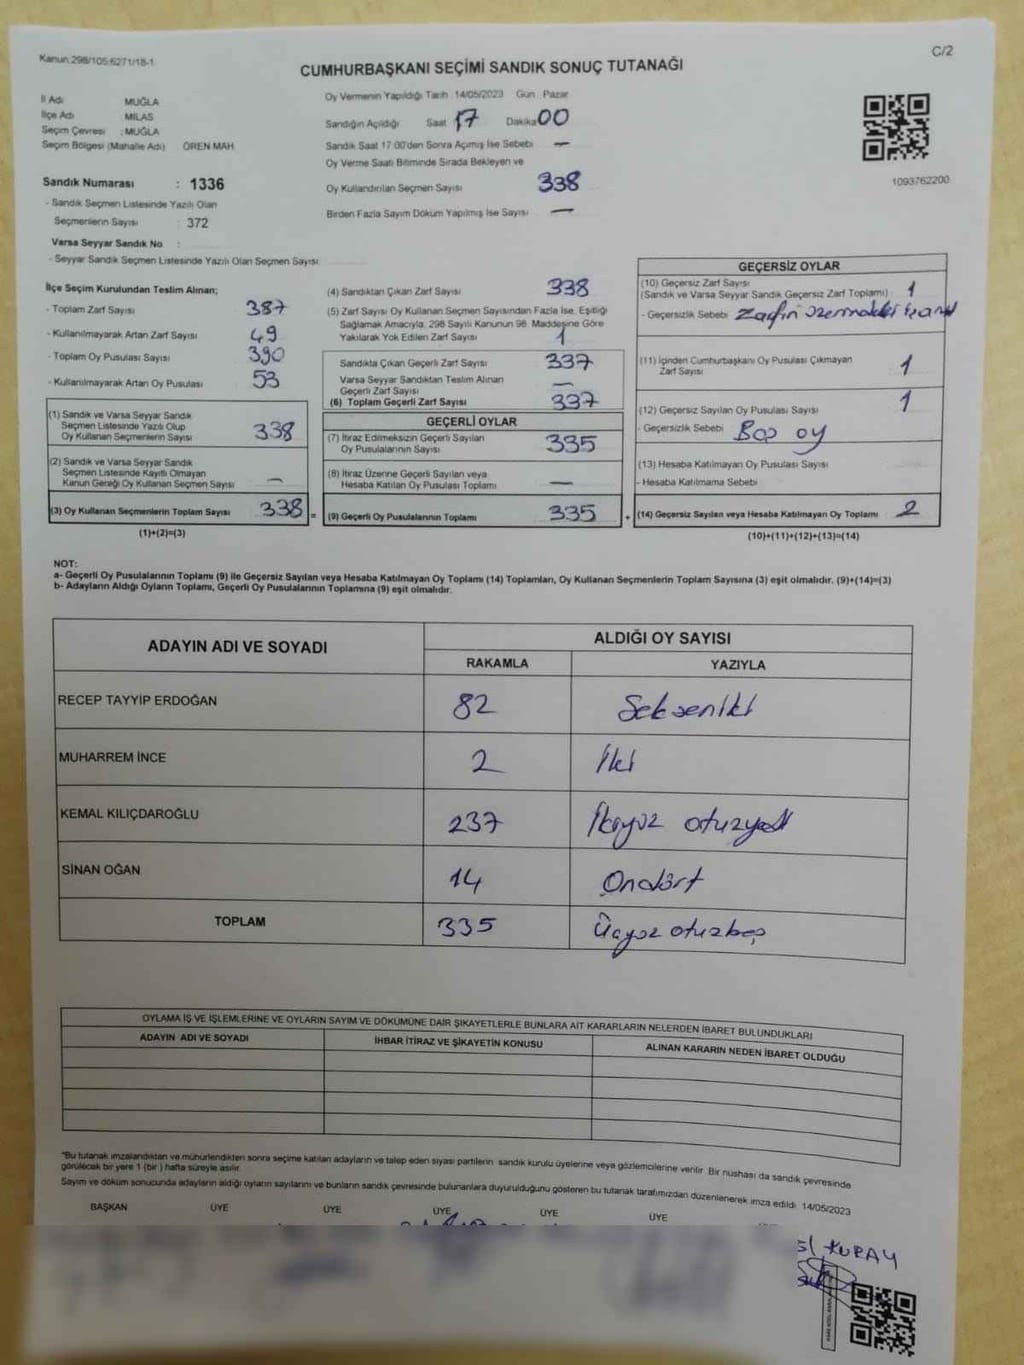 Kanun:298/105;6271/18-1
C/2
CUMHURBAŞKANI SEÇİMİ SANDIK SONUÇ TUTANAĞI
İl Adı MUĞLA
İlçe Adı MİLAS
Seçim Çevresi : MUĞLA
Seçim Bölgesi (Mahalle Adı) ÖREN MAH.
Sandık Numarası : 1336
- Sandık Seçmen Listesinde Yazılı Olan
Seçmenlerin Sayısı : 372
Varsa Seyyar Sandık No :
- Seyyar Sandık Seçmen Listesinde Yazılı Olan Seçmen Sayısı:
Oy Vermenin Yapıldığı Tarih : 14/05/2023 Gün : Pazar
Sandığın Açıldığı Saat 17 Dakika 00
Sandık Saat 17.00'den Sonra Açılmış İse Sebebi —
Oy Verme Saati Bitiminde Sırada Bekleyen ve
Oy Kullandırılan Seçmen Sayısı 338
Birden Fazla Sayım Döküm Yapılmış İse Sayısı —
1093762200
İlçe Seçim Kurulundan Teslim Alınan;
- Toplam Zarf Sayısı 387
- Kullanılmayarak Artan Zarf Sayısı 49
- Toplam Oy Pusulası Sayısı 390
- Kullanılmayarak Artan Oy Pusulası 53
(1) Sandık ve Varsa Seyyar Sandık
Seçmen Listesinde Yazılı Olup
Oy Kullanan Seçmenlerin Sayısı 338
(2) Sandık ve Varsa Seyyar Sandık
Seçmen Listesinde Kayıtlı Olmayan
Kanun Gereği Oy Kullanan Seçmen Sayısı —
(3) Oy Kullanan Seçmenlerin Toplam Sayısı 338 =
(1)+(2)=(3)
(4) Sandıktan Çıkan Zarf Sayısı 338
(5) Zarf Sayısı Oy Kullanan Seçmen Sayısından Fazla İse, Eşitliği
Sağlamak Amacıyla, 298 Sayılı Kanunun 98. Maddesine Göre
Yakılarak Yok Edilen Zarf Sayısı 1
Sandıkta Çıkan Geçerli Zarf Sayısı 337
Varsa Seyyar Sandıktan Teslim Alınan
Geçerli Zarf Sayısı —
(6) Toplam Geçerli Zarf Sayısı 337
GEÇERLİ OYLAR
(7) İtiraz Edilmeksizin Geçerli Sayılan
Oy Pusulalarının Sayısı 335
(8) İtiraz Üzerine Geçerli Sayılan veya
Hesaba Katılan Oy Pusulası Toplamı —
(9) Geçerli Oy Pusulalarının Toplamı 335 +
GEÇERSİZ OYLAR
(10) Geçersiz Zarf Sayısı
(Sandık ve Varsa Seyyar Sandık Geçersiz Zarf Toplamı) : 1
- Geçersizlik Sebebi Zarfın üzerindeki
(11) İçinden Cumhurbaşkanı Oy Pusulası Çıkmayan
Zarf Sayısı 1
(12) Geçersiz Sayılan Oy Pusulası Sayısı 1
- Geçersizlik Sebebi Boş oy
(13) Hesaba Katılmayan Oy Pusulası Sayısı
- Hesaba Katılmama Sebebi
(14) Geçersiz Sayılan veya Hesaba Katılmayan Oy Toplamı 2
(10)+(11)+(12)+(13)=(14)
NOT:
a- Geçerli Oy Pusulalarının Toplamı (9) ile Geçersiz Sayılan veya Hesaba Katılmayan Oy Toplamı (14) Toplamları, Oy Kullanan Seçmenlerin Toplam Sayısına (3) eşit olmalıdır. (9)+(14)=(3)
b- Adayların Aldığı Oyların Toplamı, Geçerli Oy Pusulalarının Toplamına (9) eşit olmalıdır.
ADAYIN ADI VE SOYADI ALDIĞI OY SAYISI
RAKAMLA YAZIYLA
RECEP TAYYİP ERDOĞAN 82 Sekseniki
MUHARREM İNCE 2 İki
KEMAL KILIÇDAROĞLU 237 İkiyüz otuzyedi
SİNAN OĞAN 14 Ondört
TOPLAM 335 Üçyüz otuzbeş
OYLAMA İŞ VE İŞLEMLERİNE VE OYLARIN SAYIM VE DÖKÜMÜNE DAİR ŞİKAYETLERLE BUNLARA AİT KARARLARIN NELERDEN İBARET BULUNDUKLARI
ADAYIN ADI VE SOYADI İHBAR İTİRAZ VE ŞİKAYETİN KONUSU ALINAN KARARIN NEDEN İBARET OLDUĞU
"Bu tutanak imzalandıktan ve mühürlendikten sonra seçime katılan adayların ve talep eden siyasi partilerin sandık kurulu üyelerine veya gözlemcilerine verilir. Bir nüshası da sandık çevresinde
görülecek bir yere 1 (bir) hafta süreyle asılır.
Sayım ve döküm sonucunda adayların aldığı oyların sayılarını ve bunların sandık çevresinde bulunanlara duyurulduğunu gösteren bu tutanak tarafımızdan düzenlenerek imza edildi. 14/05/2023
BAŞKAN ÜYE ÜYE ÜYE ÜYE ÜYE
KURAY